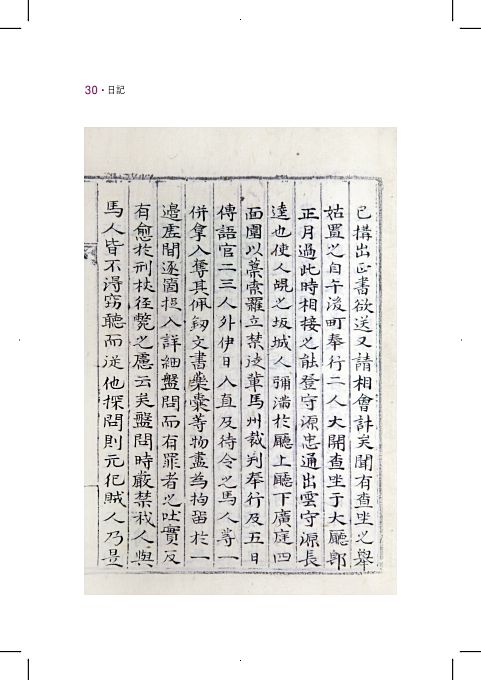 30・日記
已搆出正書欲送又請相會計矣聞有查坐之擧
姑置之自午後町奉行二人大開查坐于大廳郎
正月過此時相接之能登守源忠通出雲守源長
逵也使人覘之坂城人彌滿於廳上廳下廣庭四
面圍以藁索羅立禁徒輩馬州裁判奉行及五日
傳語官二三人外伊日入直及待令之馬人等一
併拿入奪其佩釼文書藥囊等物盡爲拘留於一
邊虛間逐箇招入詳細盤問而有罪者之吐實反
有愈於刑杖徑斃之慮云矣盤問時嚴禁我人與
馬人皆不得窃聽而從他探問則元犯賊人乃是